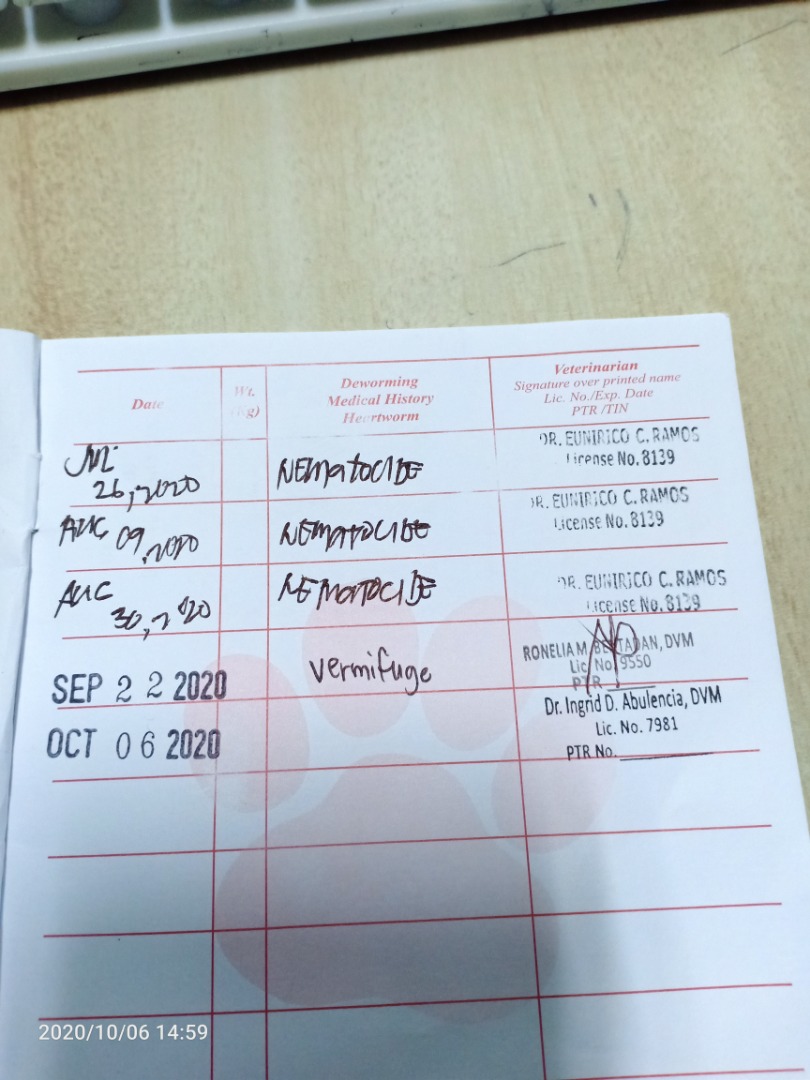 Date
Wt.
(Kg)
Deworming
Medical History
Heartworm
Veterinarian
Signature over printed name
Lic. No./Exp. Date
PTR /TIN
26, 2020
NEMATOCIDE
DR. EUNIRICO C. RAMOS
License No. 8139
AUG 09, 2020
NEMATOCIDE
DR. EUNIRICO C. RAMOS
License No. 8139
AUG 30, 2020
NEMATOCIDE
DR. EUNIRICO C. RAMOS
License No. 8139
SEP 22 2020
vermifuge
RONELIA M. DVM
Lic. No. 9550
PTR
OCT 06 2020
Dr. Ingrid D. Abulencia, DVM
Lic. No. 7981
PTR No.
2020/10/06 14:59